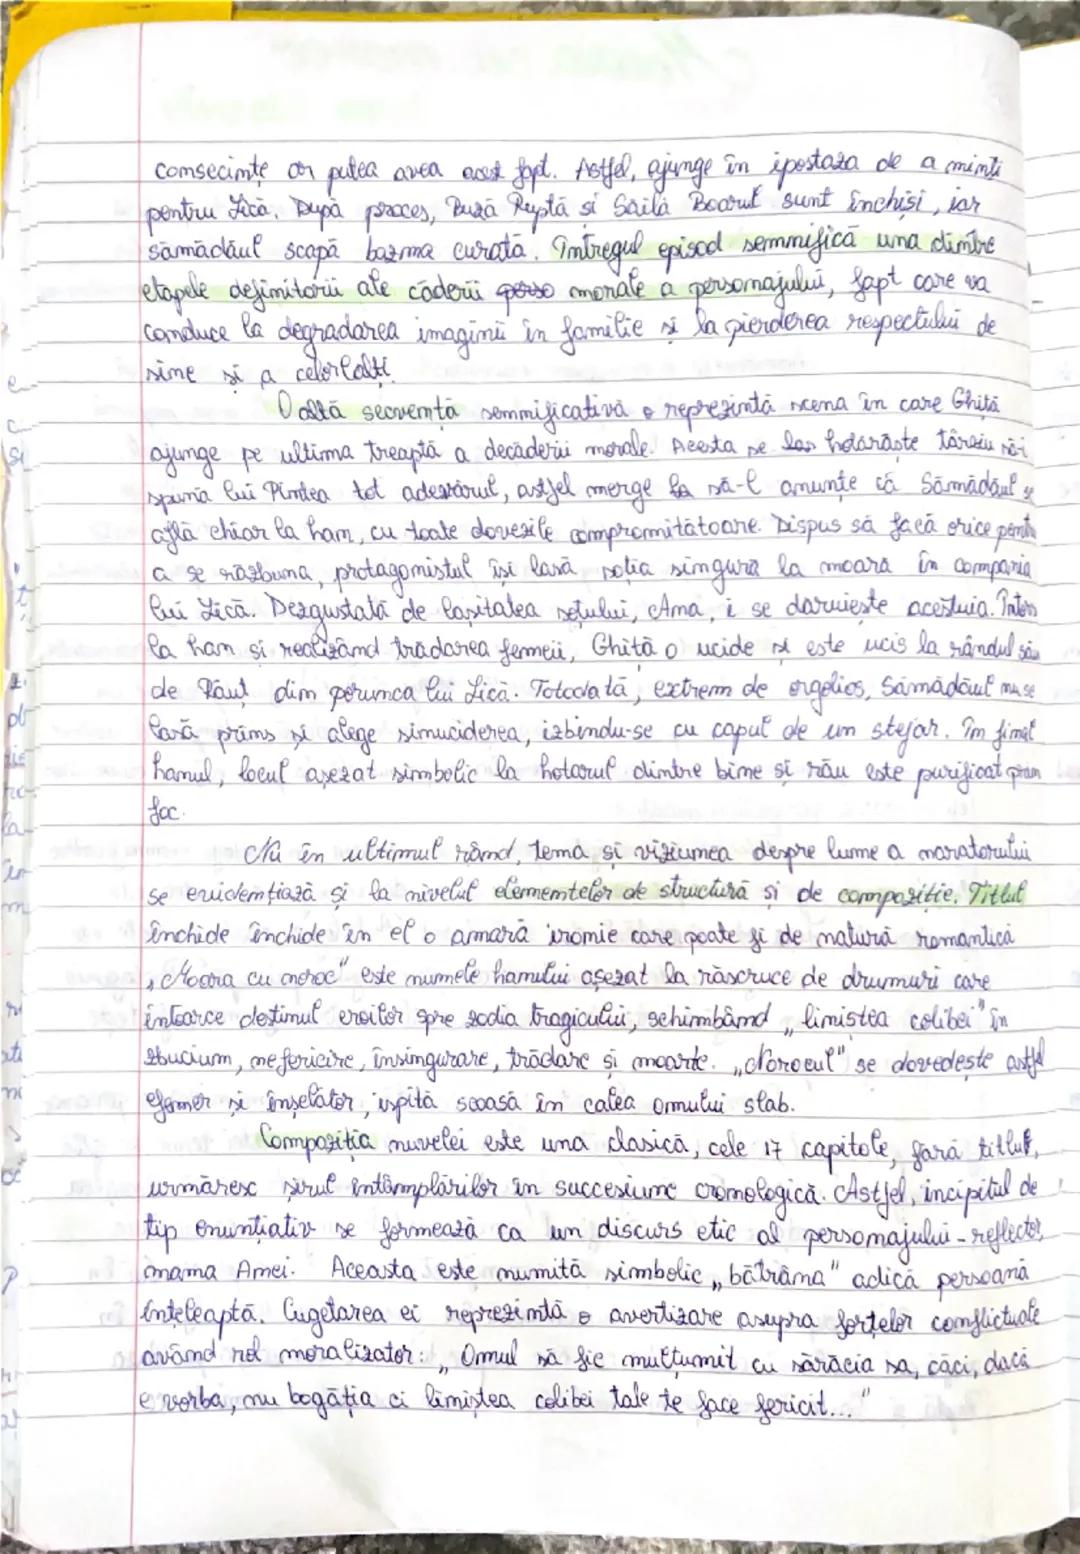 comsecimțe ar putea avea acest fapt. Astfel, ajunge în ipostaza de a minți
pentru Lică. După proces, Buză Ruptă si Săilă Boarul sunt închiși, iar
sămădăul scapă bazma curată. Întregul episod semnifică una dintre
etapele definitorii ale căderii morale a personajului, fapt care va
conduce la degradarea imaginii în familie și la pierderea respectului de
sine și a celorlalți.
O altă secvență semnificativă o reprezintă scena în care Ghiță
ajunge pe ultima treaptă a decăderii morale. Acesta se hotărăște târziu să-i
spună lui Pintea tot adevărul, astfel merge la să-l anunțe că Sămădăul se
află chiar la han, cu toate dovezile compromițătoare. Dispus să facă orice pentru
a se răzbuna, protagonistul își lasă soția singură la moară în compania
lui Lică. Dezgustată de lașitatea soțului, Ana, i se daruiește acestuia. Întors
la han și realizând trădarea femeii, Ghiță o ucide și este ucis la rândul său
de Răuț din porunca lui Lică. Totodată, extrem de orgolios, Sămădăul nu se
lasă prins și alege sinuciderea, izbindu-se cu capul de un stejar. În final
hanul, locul așezat simbolic la hotarul dintre bine și rău este purificat prin
foc.
Nu în ultimul rând, tema și viziunea despre lume a naratorului
se evidențiază și la nivelul elementelor de structură și de compoziție. Titlul
închide închide în el o amară ironie care poate fi de natură romantică
„Moara cu noroc" este numele hanului așezat la răscruce de drumuri care
întoarce destinul eroilor spre zodia tragicului, schimbând „liniștea colibei" în
zbucium, nefericire, însingurare, trădare și moarte. „Norocul" se dovedește astfel
efemer și înșelător, ispită scoasă în calea omului slab.
Compoziția nuvelei este una clasică, cele 17 capitole, fără titlu,
urmăresc șirul întâmplărilor în succesiune cronologică. Astfel, incipitul de
tip enunțiativ se formează ca un discurs etic al personajului-reflector,
mama Anei. Aceasta este numită simbolic „bătrâna" adică persoană
înțeleaptă. Cugetarea ei reprezintă o avertizare asupra forțelor conflictuale
având rol moralizator: „Omul să fie mulțumit cu sărăcia sa, căci, dacă
e vorba, nu bogăția ci liniștea colibei tale te face fericit..."